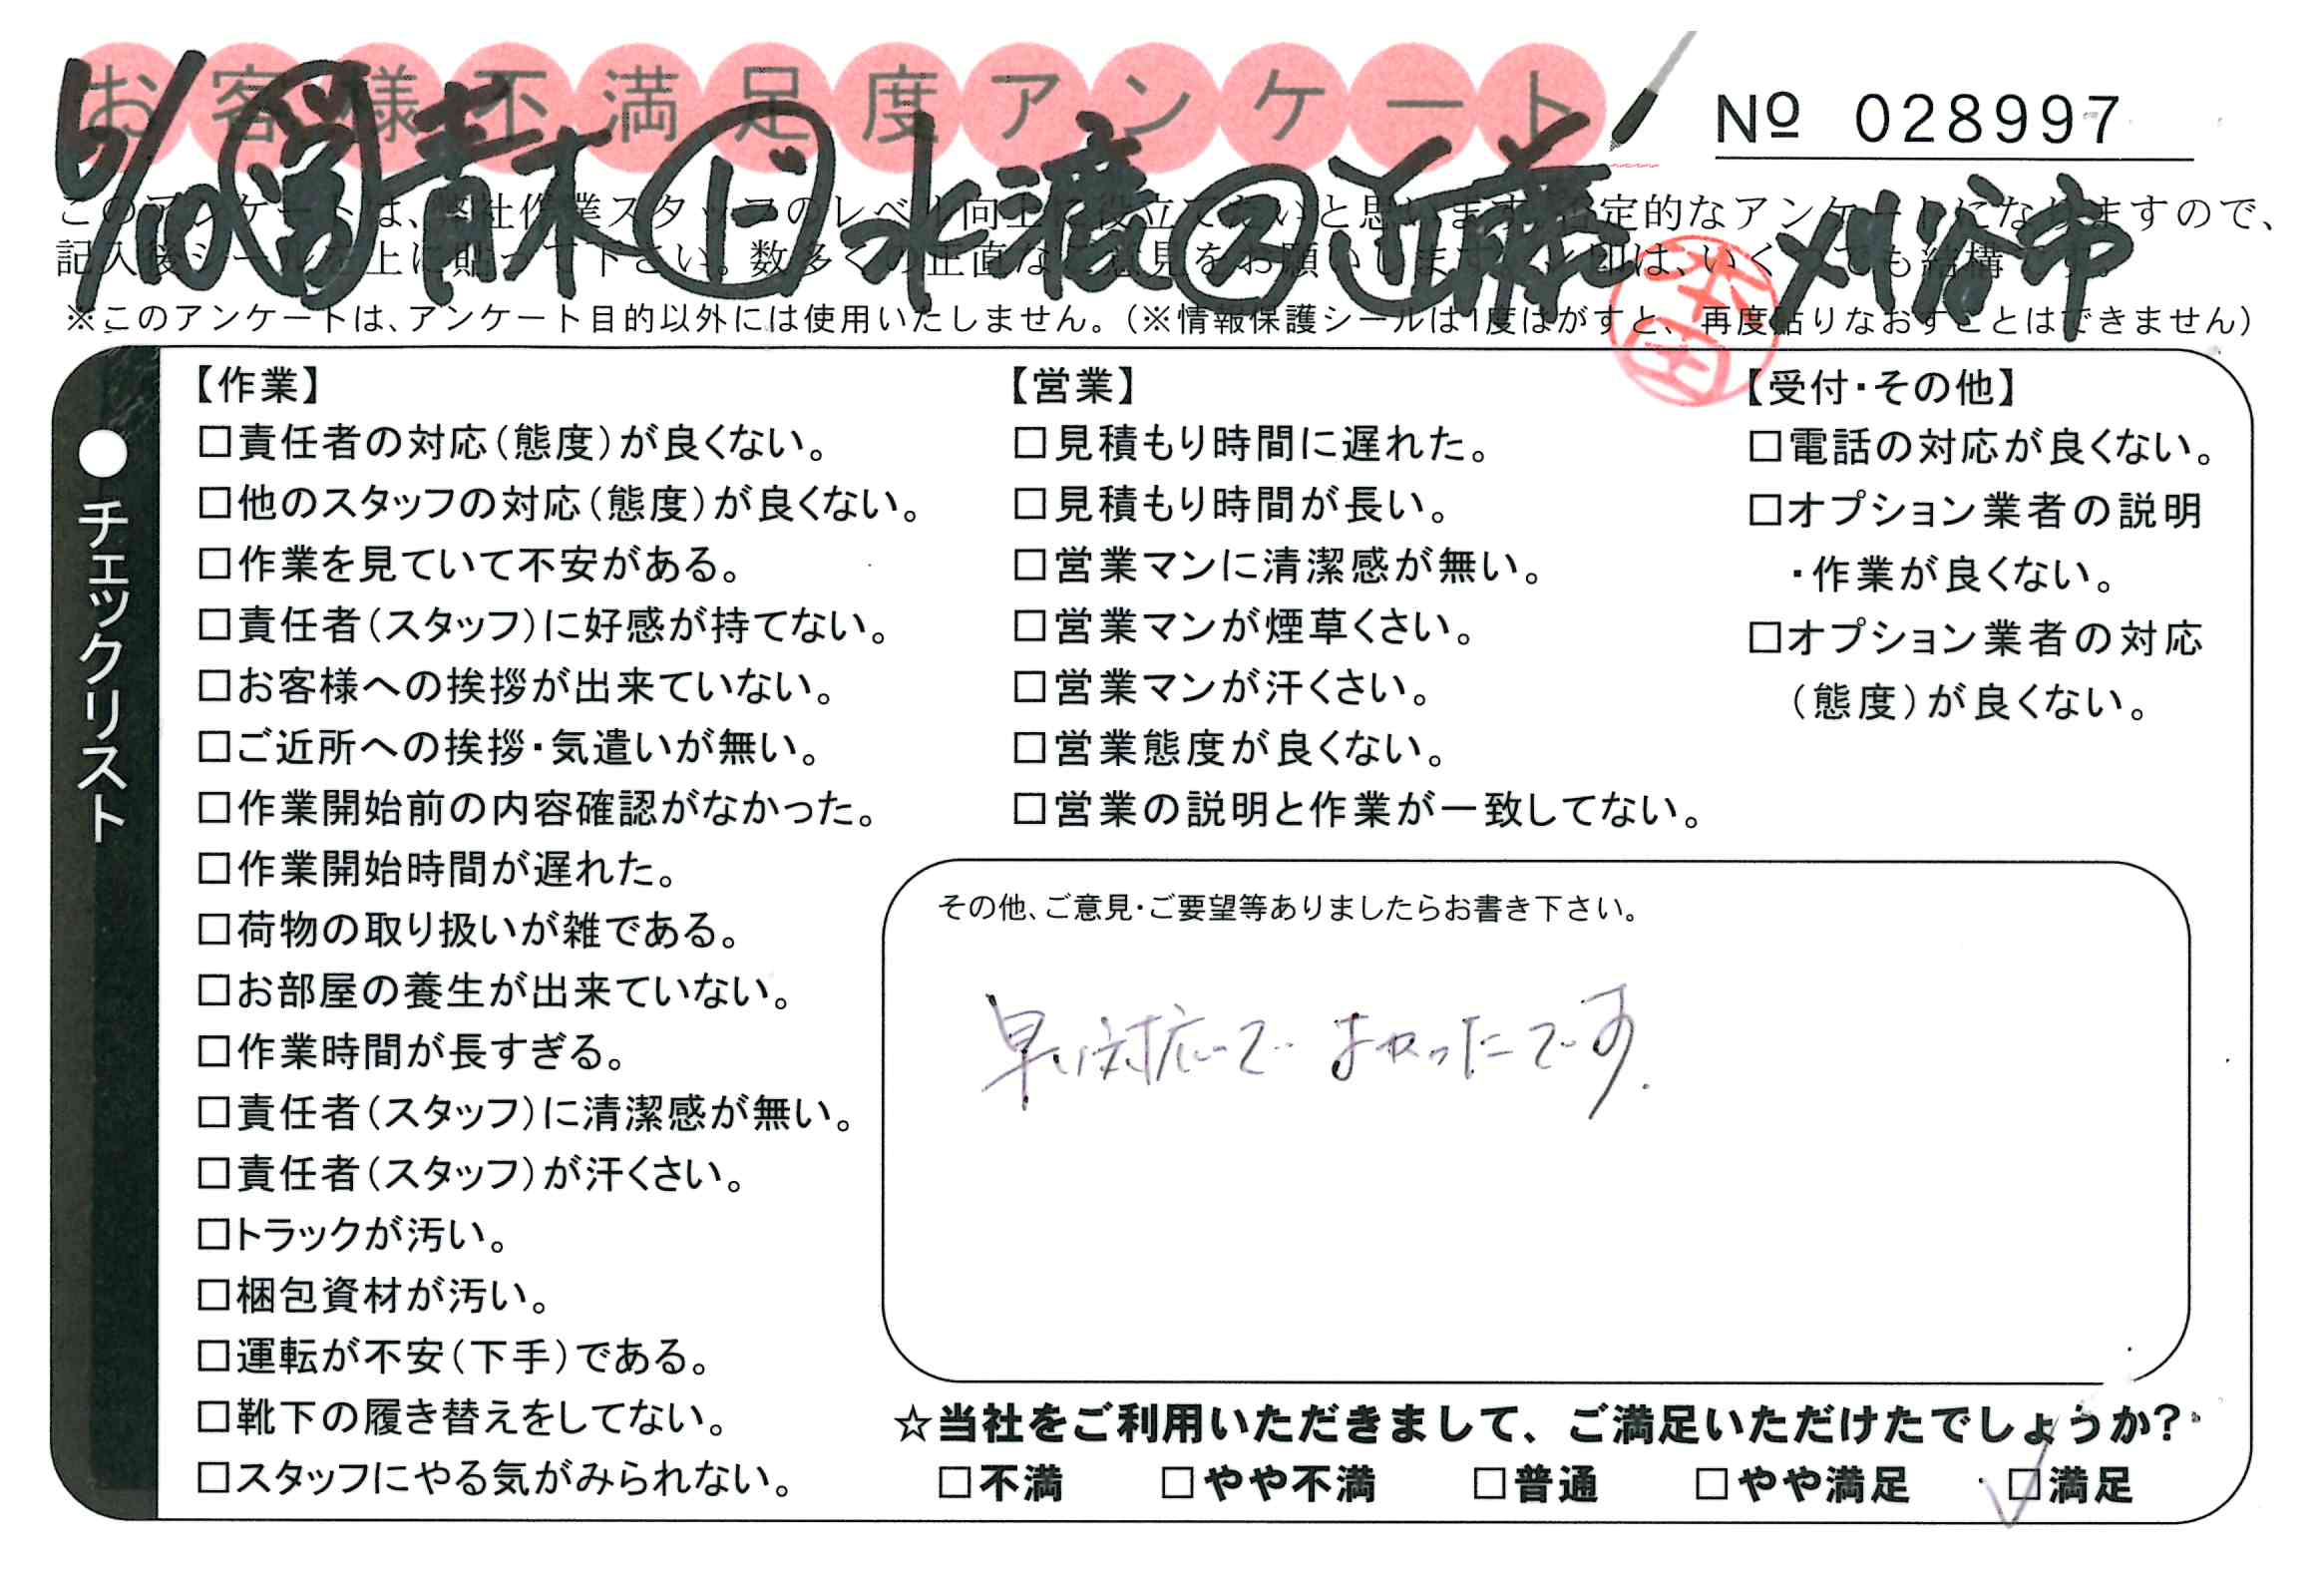 お客様不満足度アンケート
№ 028997
6/10 営 青木 リーダー 水濃 ② 近藤 刈谷市
このアンケートは、弊社作業スタッフのレベル向上に役立てたいと思います。否定的なアンケートになりますので、
記入後シールを上に貼って下さい。数多くの正直なご意見をお願いします。レ印は、いくつでも結構です。
※このアンケートは、アンケート目的以外には使用いたしません。（※情報保護シールは1度はがすと、再度貼りなおすことはできません）
●チェックリスト
【作業】
□責任者の対応（態度）が良くない。
□他のスタッフの対応（態度）が良くない。
□作業を見ていて不安がある。
□責任者（スタッフ）に好感が持てない。
□お客様への挨拶が出来ていない。
□ご近所への挨拶・気遣いが無い。
□作業開始前の内容確認がなかった。
□作業開始時間が遅れた。
□荷物の取り扱いが雑である。
□お部屋の養生が出来ていない。
□作業時間が長すぎる。
□責任者（スタッフ）に清潔感が無い。
□責任者（スタッフ）が汗くさい。
□トラックが汚い。
□梱包資材が汚い。
□運転が不安（下手）である。
□靴下の履き替えをしてない。
□スタッフにやる気がみられない。
【営業】
□見積もり時間に遅れた。
□見積もり時間が長い。
□営業マンに清潔感が無い。
□営業マンが煙草くさい。
□営業マンが汗くさい。
□営業態度が良くない。
□営業の説明と作業が一致してない。
【受付・その他】
□電話の対応が良くない。
□オプション業者の説明
・作業が良くない。
□オプション業者の対応
（態度）が良くない。
その他、ご意見・ご要望等ありましたらお書き下さい。
早い対応で よかったです.
☆当社をご利用いただきまして、ご満足いただけたでしょうか?
□不満 □やや不満 □普通 □やや満足 ☑満足